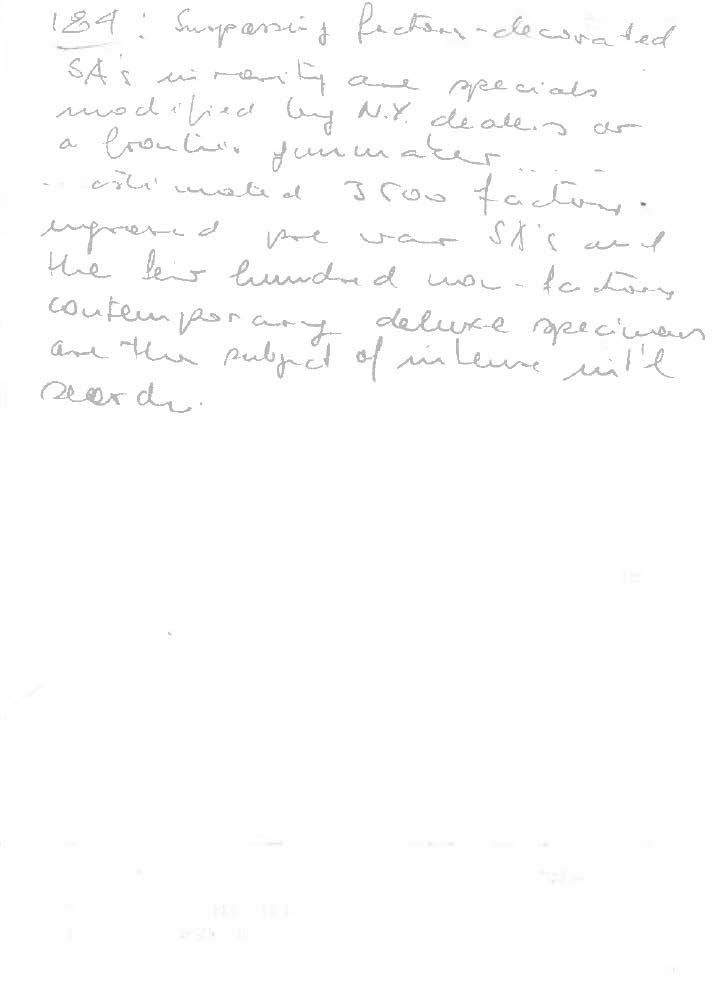 184: Surpassing factory-decorated
SA's in rarity are specials
modified by N.Y. dealers or
a frontier gunmaker ....
.. estimated 3500 factory.
engraved pre war SA's and
the few hundred non-factory
contemporary deluxe specimens
are the subject of intense int'l
search.